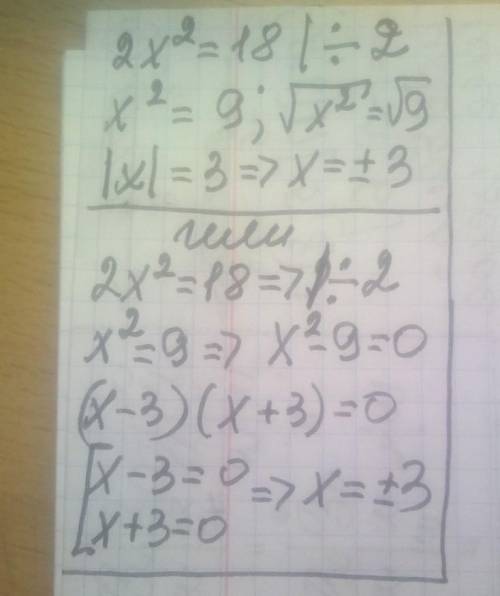 2x² = 18 | ÷ 2
x² = 9; √x² = √9
|x| = 3 => x = ± 3
или
2x² = 18 => | ÷ 2
x² = 9 => x² - 9 = 0
(x - 3) (x + 3) = 0
[ x - 3 = 0
x + 3 = 0 => x = ± 3